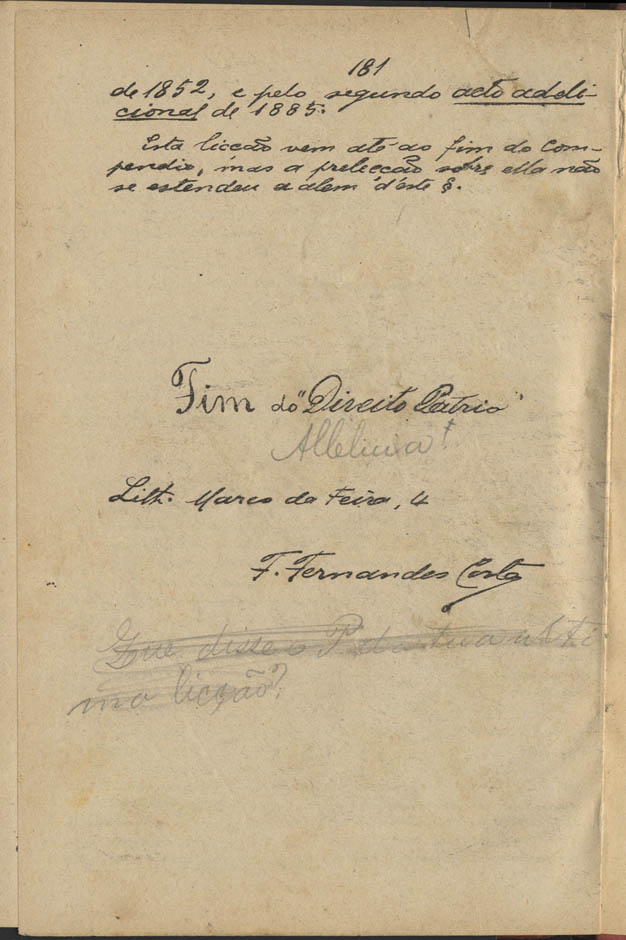 181
de 1852, e pelo segundo acto addi-
cional de 1885.
Esta licção vem até ao fim do Com-
pendio, mas a prelecção sobre ella não
se estendeu a alem d'éste §.
Fim do "Direito Patrio"
Alleluia!
Lith. Marco da Feira, 4
F. Fernandes Costa
Que disse o P na sua ulti
ma licção?